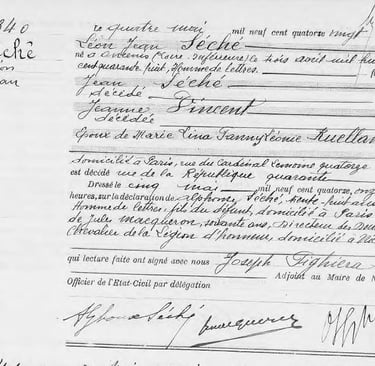 340
Le quatre mai, mil neuf cent quatorze vingt
Séché
Léon Jean Séché
né à Ancenis (Loire Inférieure) le trois avril mil hu
cent quarante huit, Homme de lettres.
Jean Séché
décédé
Jeanne Vincent
décédée
Epoux de Marie Lina Fanny Léonie Ruellan
domicilié à Paris, rue du Cardinal Lemoine quatorze
est décédé rue de la République quarante
Dressé le cinq mai, mil neuf cent quatorze, onz
heures, sur la déclaration de Alphonse Séché, trente huit a
Homme de lettres, fils du défunt, domicilié à Paris
de Jules Macqueron, soixante ans, Directeur des
Chevalier de la Légion d'honneur, domicilié à Nic
qui lecture faite ont signé avec nous Joseph Tighiera
Adjoint au Maire de N
Officier de l'Etat-Civil par délégation
Alphonse Séché